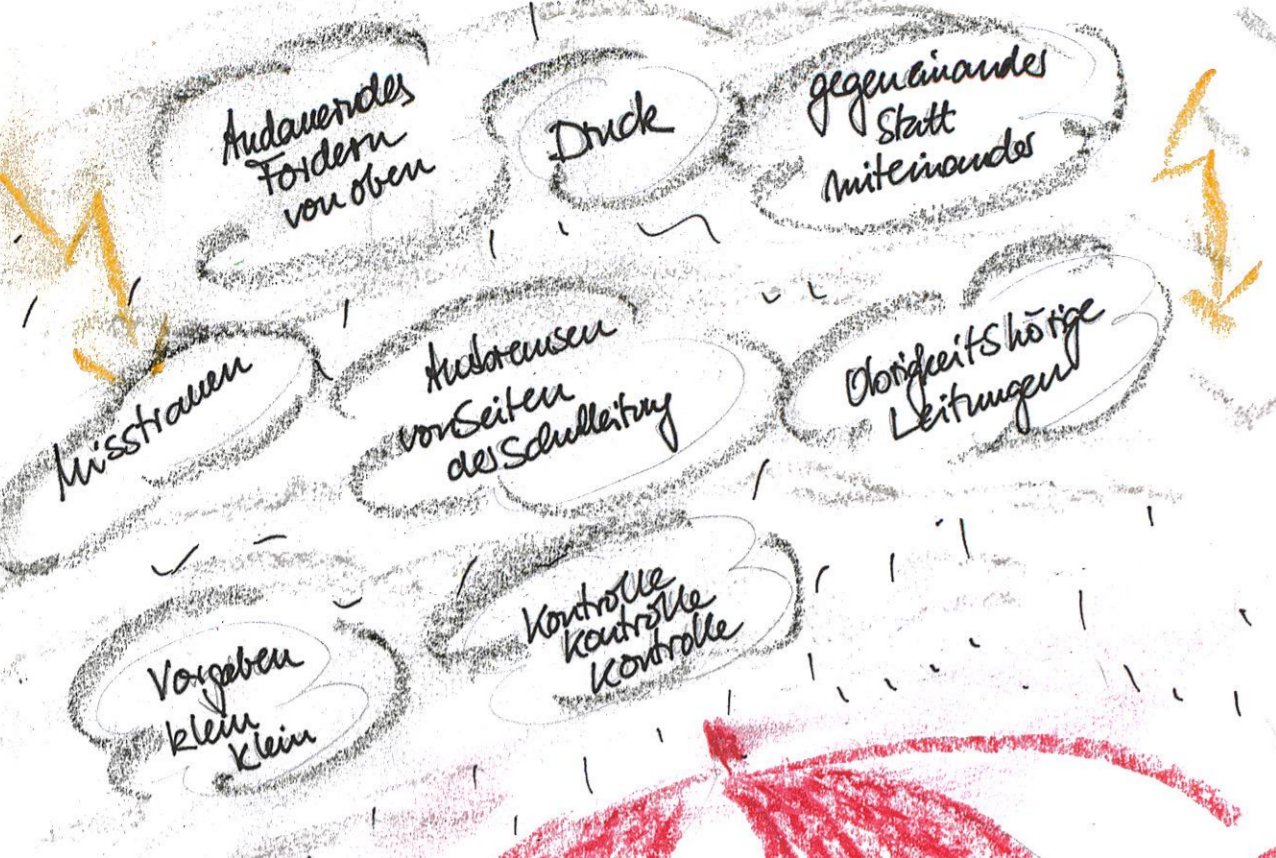 Andauerndes
Fordern
von oben
Druck
gegeneinander
statt
miteinander
Misstrauen
Ausbremsen
von Seiten
der Schulleitung
Obrigkeitshörige
Leitungen
Vorgaben
klein
klein
Kontrolle
Kontrolle
Kontrolle